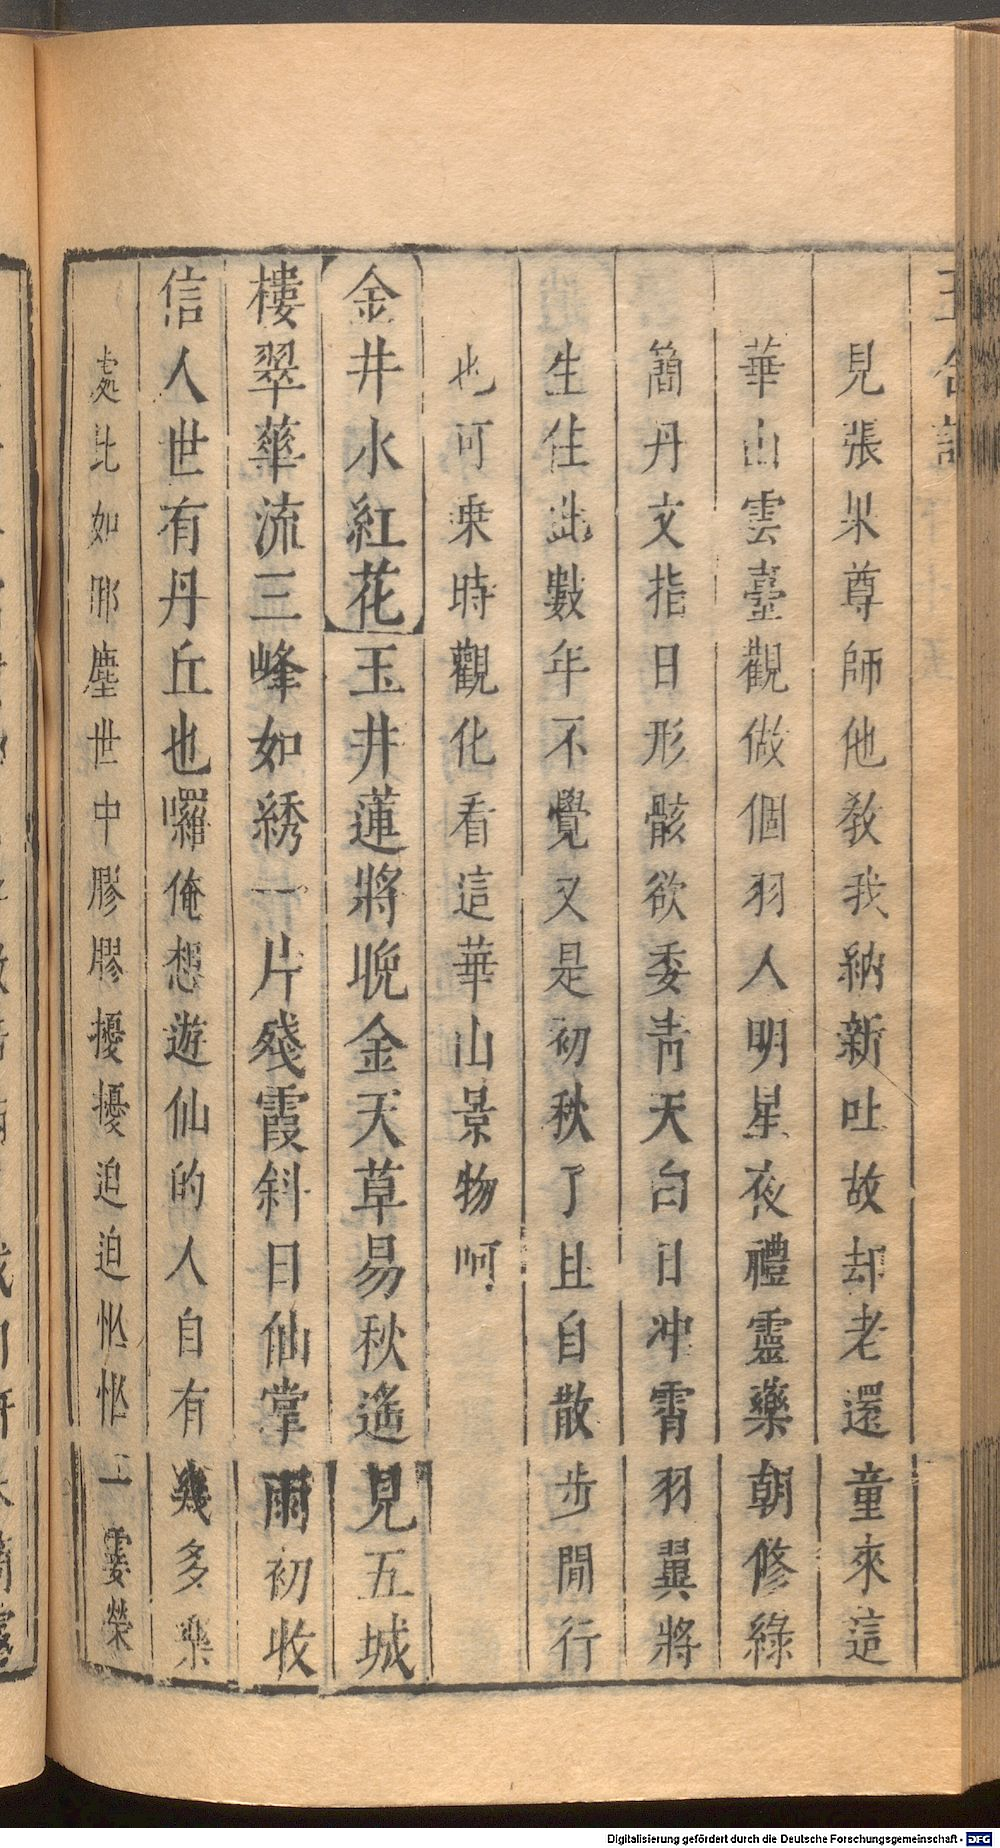 見張果尊師他教我納新吐故却老還童來這
華山雲臺觀做個羽人明星夜禮靈藥朝修綠
簡丹文指日形骸欲委青天白日冲霄羽翼將
生住此數年不覺又是初秋了且自散步閒行
也可乗時觀化看這華山景物呵
金井水紅花玉井蓮將晚金天草易秋遙見五城
樓翠華流三峰如綉一片殘霞斜日仙掌雨初收
信人世有丹丘也囉俺想遊仙的人自有幾多樂
處比如那塵世中膠膠擾擾迫迫忙忙一霎榮
Digitalisierung gefördert durch die Deutsche Forschungsgemeinschaft - DFG